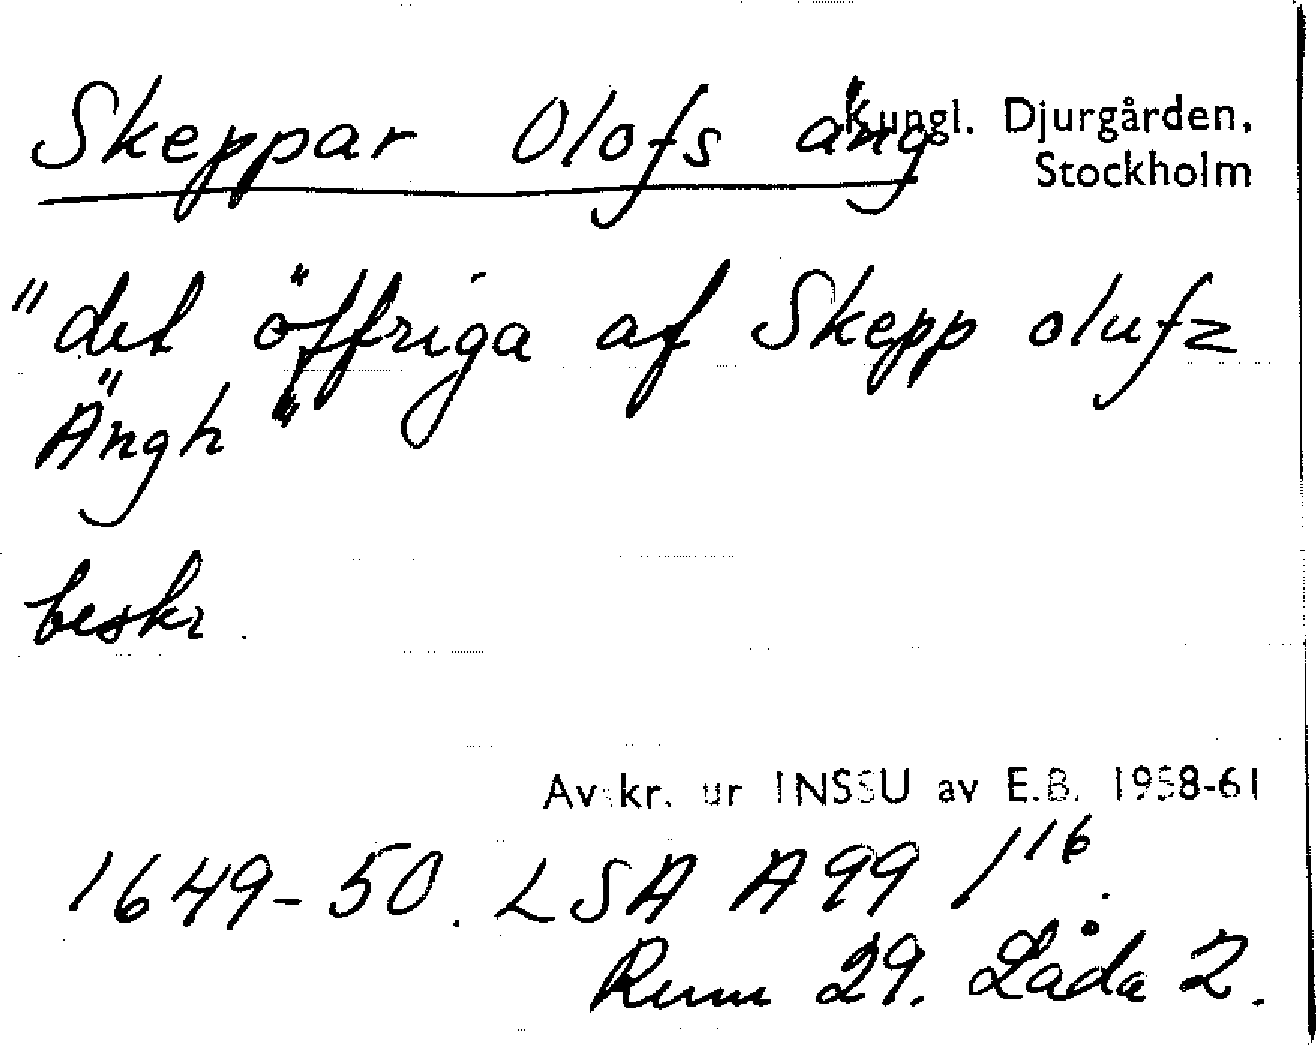 Skeppar Olofs äng Kungl. Djurgården,
Stockholm
"det öffriga af Skepp olufz
Ängh"
beskr.
Avskr. ur INSSU av E.B. 1958-61
1649-50. LSA A99 /16.
Rum 29. Låda 2.